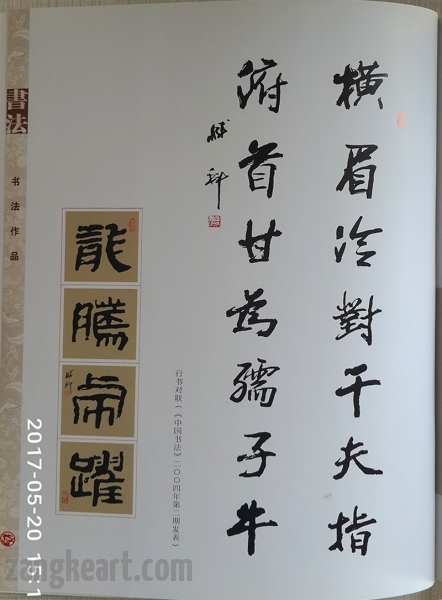 橫眉冷對千夫指
俯首甘為孺子牛
臧科
行书对联（《中国书法》二〇〇四年第二期发表）
龍騰虎躍
書法
书法作品
2017-05-20 15:1
zangkeart.com